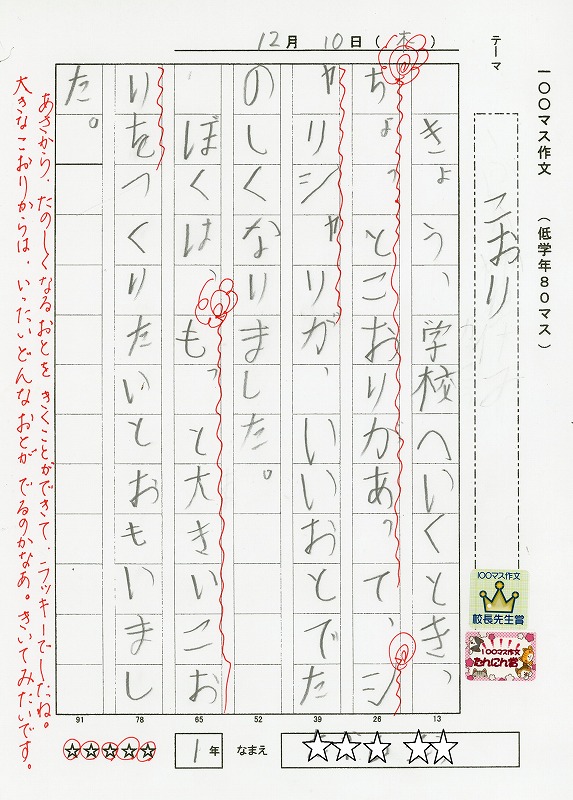 一〇〇マス作文　（低学年８０マス）
テーマ
こおり
12月10日（木）
きょう、学校へいくとき、
ちょっとこおりがあって、シ
ャリシャリが、いいおとでた
のしくなりました。
ぼくは、もっと大きいこお
りをつくりたいとおもいまし
た。
あさから、たのしくなるおとを きくことができて、ラッキーでしたね。
大きなこおりからは、いったいどんなおとが でるのかなあ。きいてみたいです。
100マス作文
校長先生賞
100マス作文
たんにん賞
91 78 65 52 39 26 13
1年 なまえ